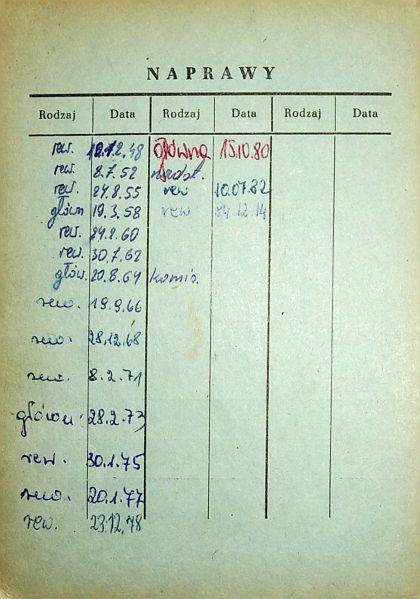 NAPRAWY
Rodzaj Data Rodzaj Data Rodzaj Data
rew. 12.12.48 główna 15.10.80
rew. 8.7.52
rew. 24.8.55 rew 10.07.82
główn 19.3.58 rew 04.12.14
rew. 24.2.60
rew. 30.7.62
głów. 20.8.64 komis.
rew. 19.9.66
rew. 28.12.68
rew. 8.2.71
główn. 28.2.73
rew. 30.1.75
rew. 20.1.77
rew. 23.12.78